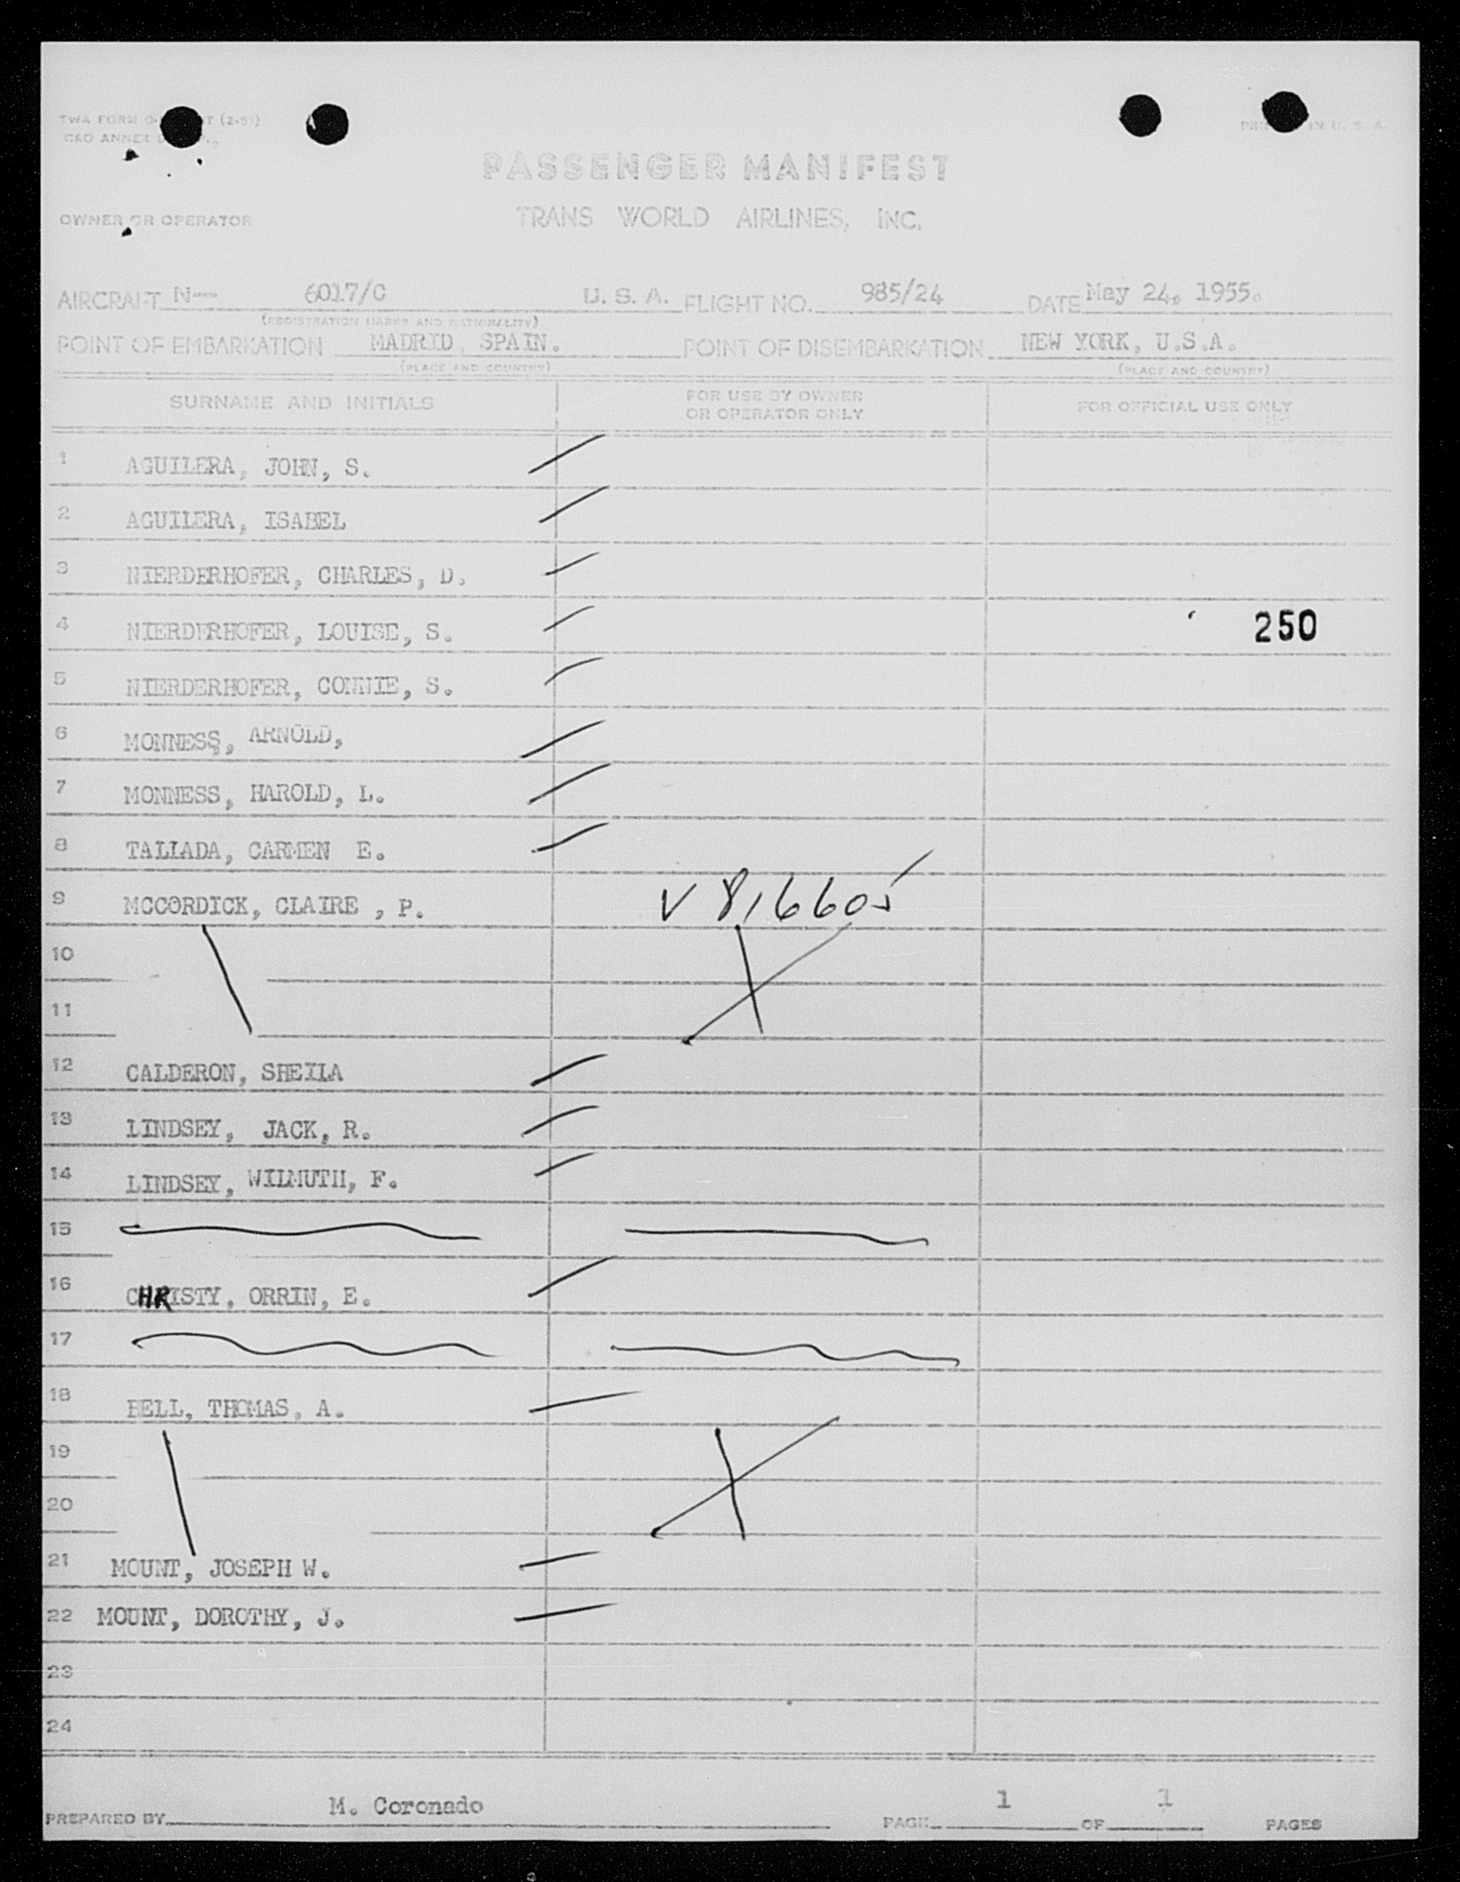 TWA FORM O- T (2-51)
C&D ANNEX
PASSENGER MANIFEST
OWNER OR OPERATOR TRANS WORLD AIRLINES, INC.
AIRCRAFT N--- 6017/C U. S. A. FLIGHT NO. 985/24 DATE May 24, 1955.
(REGISTRATION MARKS AND NATIONALITY)
POINT OF EMBARKATION MADRID, SPAIN. POINT OF DISEMBARKATION NEW YORK, U.S.A.
(PLACE AND COUNTRY) (PLACE AND COUNTRY)
SURNAME AND INITIALS FOR USE BY OWNER OR OPERATOR ONLY FOR OFFICIAL USE ONLY
1 AGUILERA, JOHN, S.
2 AGUILERA, ISABEL
3 NIERDERHOFER, CHARLES, D.
4 NIERDERHOFER, LOUISE, S. 250
5 NIERDERHOFER, CONNIE, S.
6 MONNESS, ARNOLD,
7 MONNESS, HAROLD, L.
8 TALLADA, CARMEN E.
9 MCCORDICK, CLAIRE , P. V 816605
10
11
12 CALDERON, SHEILA
13 LINDSEY, JACK, R.
14 LINDSEY, WILMUTH, F.
15
16 CHRISTY, ORRIN, E.
17
18 BELL, THOMAS, A.
19
20
21 MOUNT, JOSEPH W.
22 MOUNT, DOROTHY, J.
23
24
PREPARED BY M. Coronado PAGE 1 OF 1 PAGES